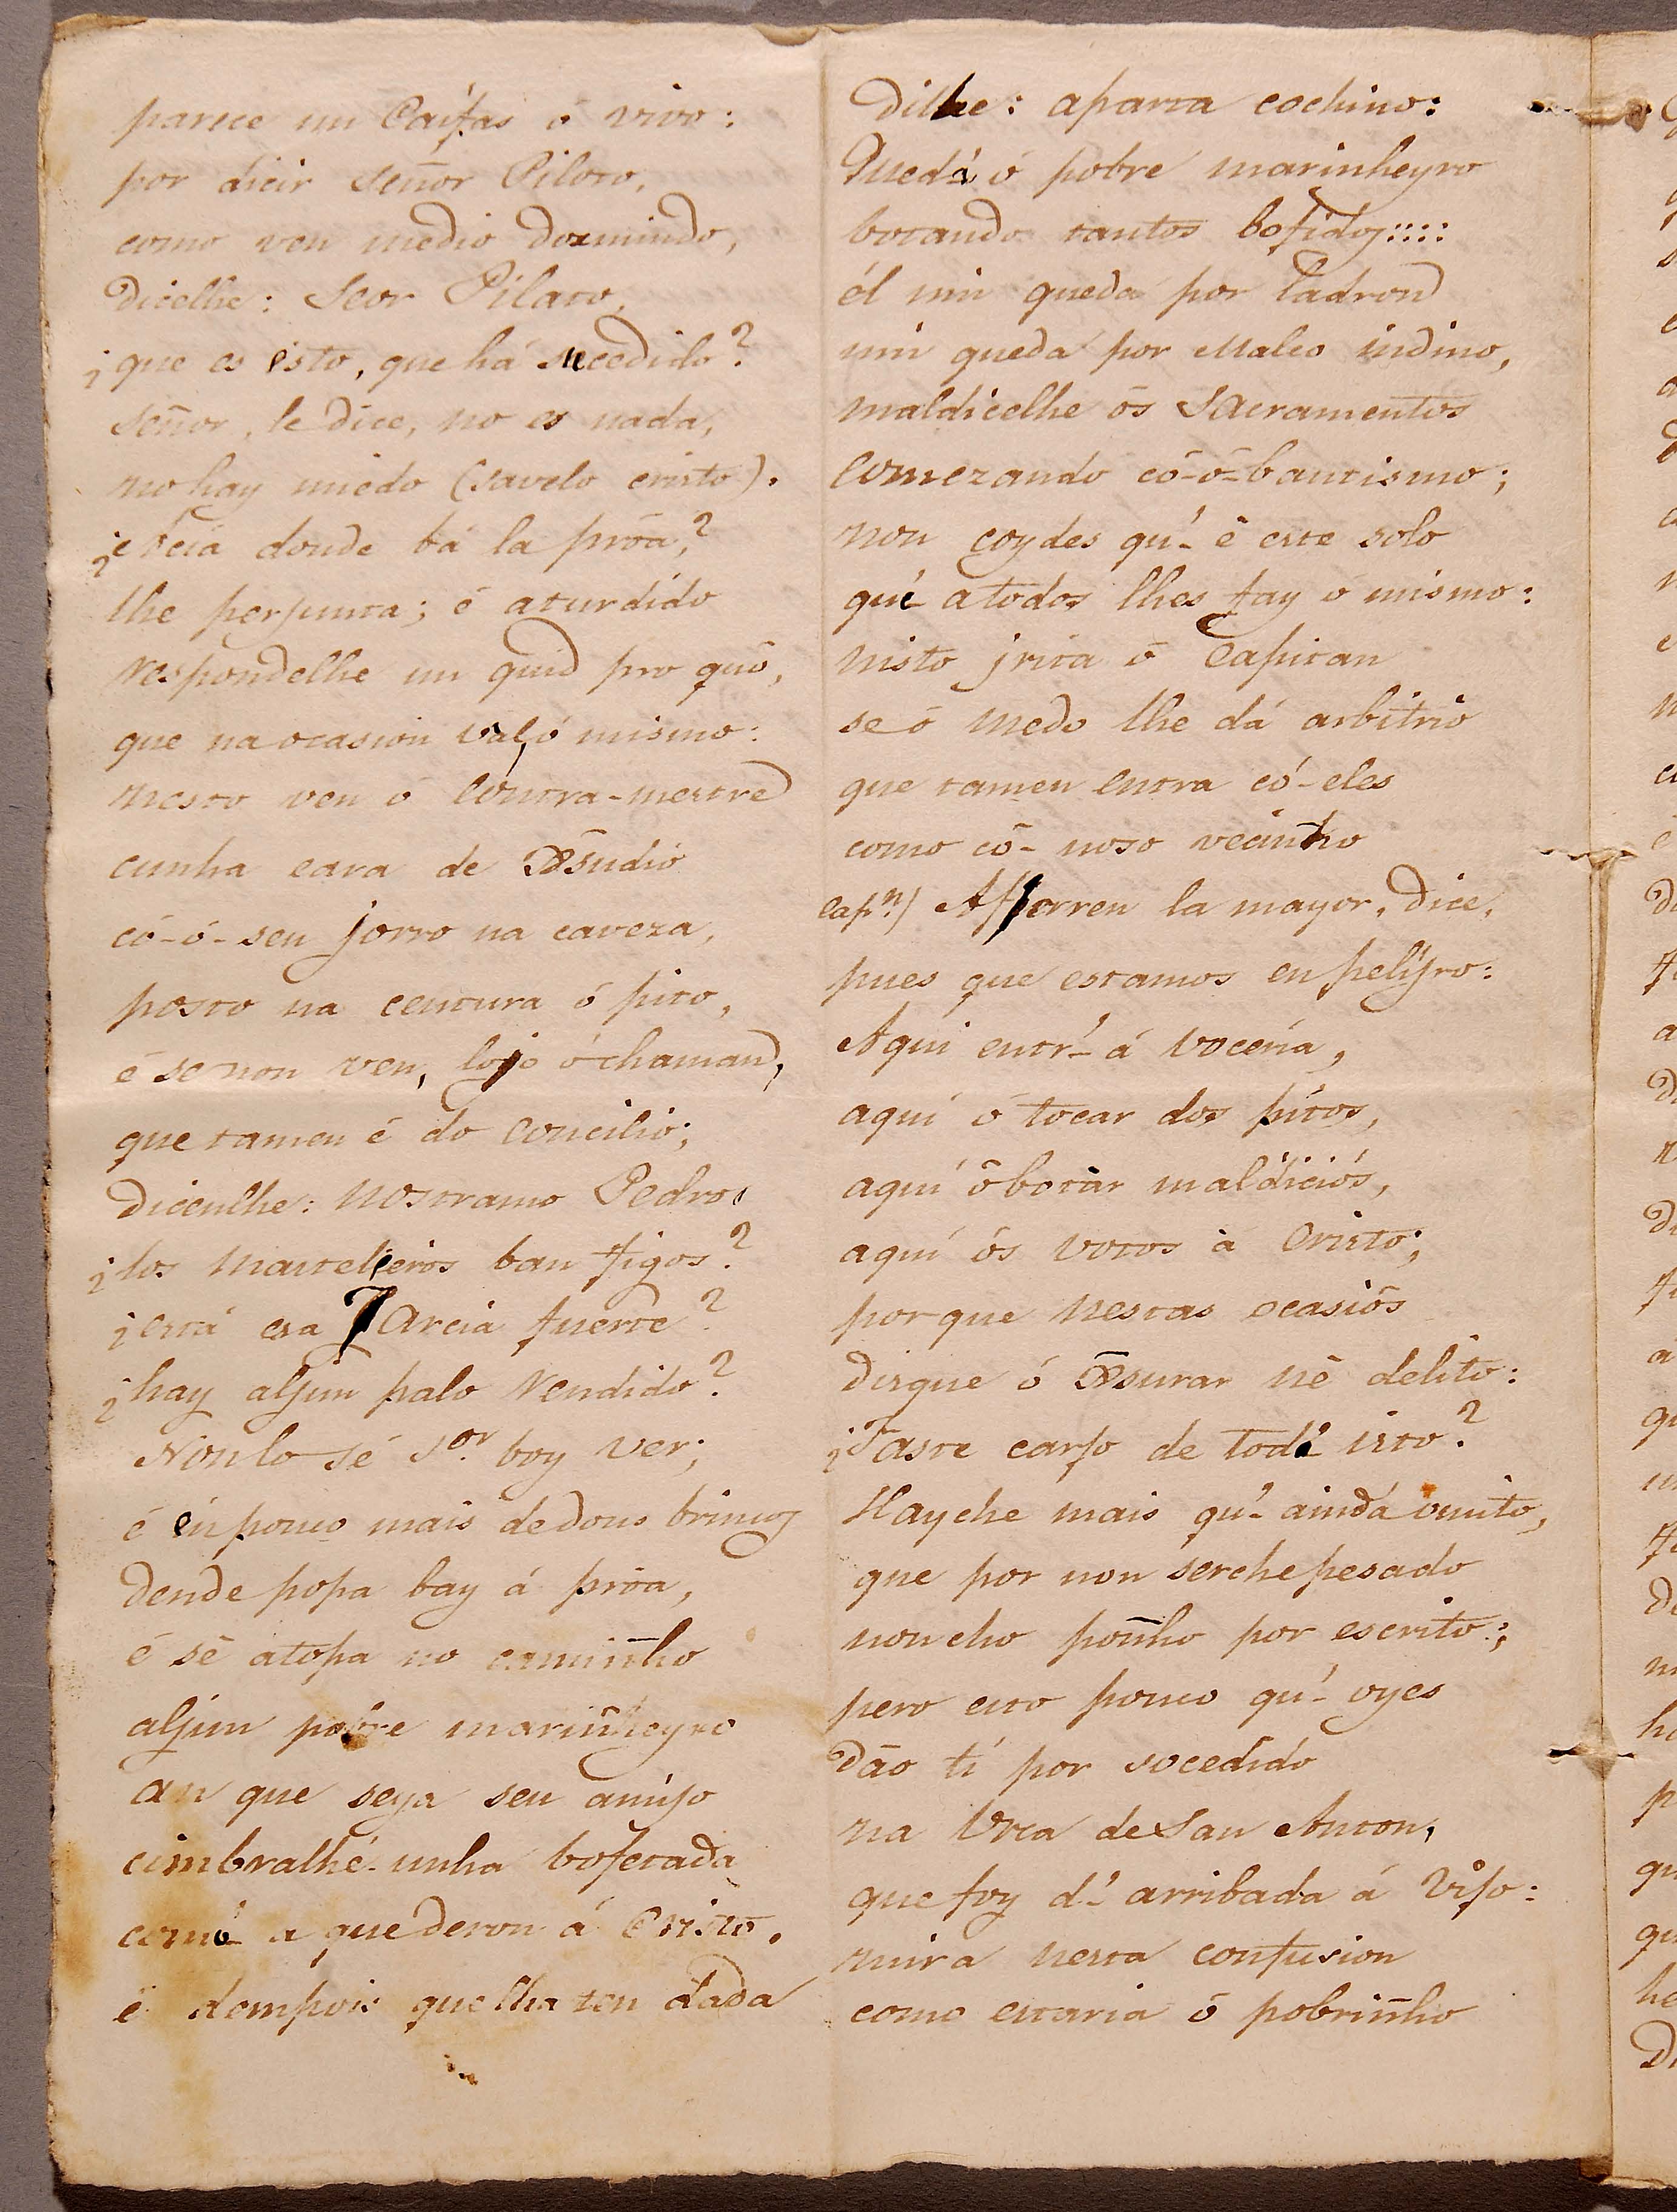 parece un Caifas ó vivo:
por dicir señor Piloto,
como ven medio dormindo,
Dicelhe: Seor Pilato,
¿que es esto, que há sucedido?
señor, le dice, no es nada,
no hay miedo (savelo cristo).
¿é hcia donde bá la prôa,?
lhe perjunta; é aturdido
Respondelhe un quid pro quô,
que na ocasion val, ó mismo:
nesto ven ó Contra-mestre
cunha cara de
có-ó-seu jorro na caveza,
posto na centura ó pito,
é se non ven, lojo ó chaman,
que tamen é do Concilio;
Dicenlhe: Nostramo Pedro,
¿los Masteleiros ban figos?
¿está esa Jarcia fuerte?
¿hay aljun palo Rendido?
Nonlo sé S.or boy ver;
é én pouco mais de dous brincos
Dende popa bay á prôa,
é sê atopa no camiñho
aljun pobre mariñheyro
an que seya seu amijo
cimbralhé-unha bofetada
comó a que deron á Cristo.
é dempois que lha ten dada
Dilhe: aparta cochino:
Quedá ó pobre marinheyro
botando tantos bofidos::::
él nin queda por ladron
nin queda por Malco indino,
maldicelhe ôs Sacramentos
Comezando cô-ô-bautismo;
non coydes qu'-ê este solo
qué a todos lhes fay o mismo:
nisto jrita ô Capitan
se ô medo lhe dá arbitrio
que tamen entra có-eles
como cô-noso vecinho
Cap.n) Afferren la mayor, Dice,
pues que estamos en pelijro:
Aqui entr'-á vocería,
aquí ó tocar dos pitos,
aquí ô botár maldiciôs,
aquí ôs votos á Cristo;
porque nestas ocasiôs
Disque ó nê delito:
¿Faste carjo de tod' isto?
Hayche mais qu'- aindá omito,
que por non serche pesado
non cho poñho por escrito;
pero esto pouco qu'- oyes
Dáo ti por socedido
na Urca de San Anton,
que foy d'- arribada á Vijo:
mira nesta confusion
como estaria ó pobriñho